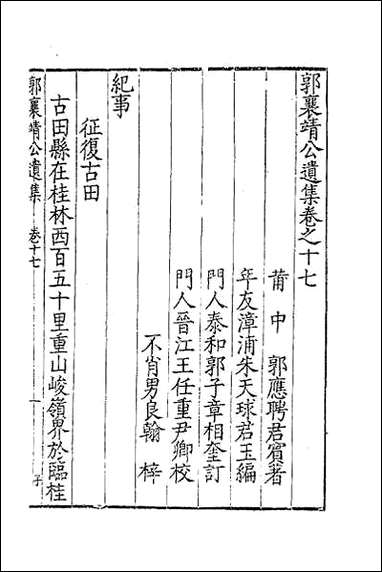 郭襄靖公遺集卷之十七
莆中郭應聘君賓著
年友漳浦朱天球君玉編
門人泰和郭子章相奎訂
門人晉江王任重尹卿校
不肖男良翰梓
紀事
征復古田
古田縣在桂林西百五十里重山峻嶺界於臨桂
郭襄靖公遺集
卷十七
一